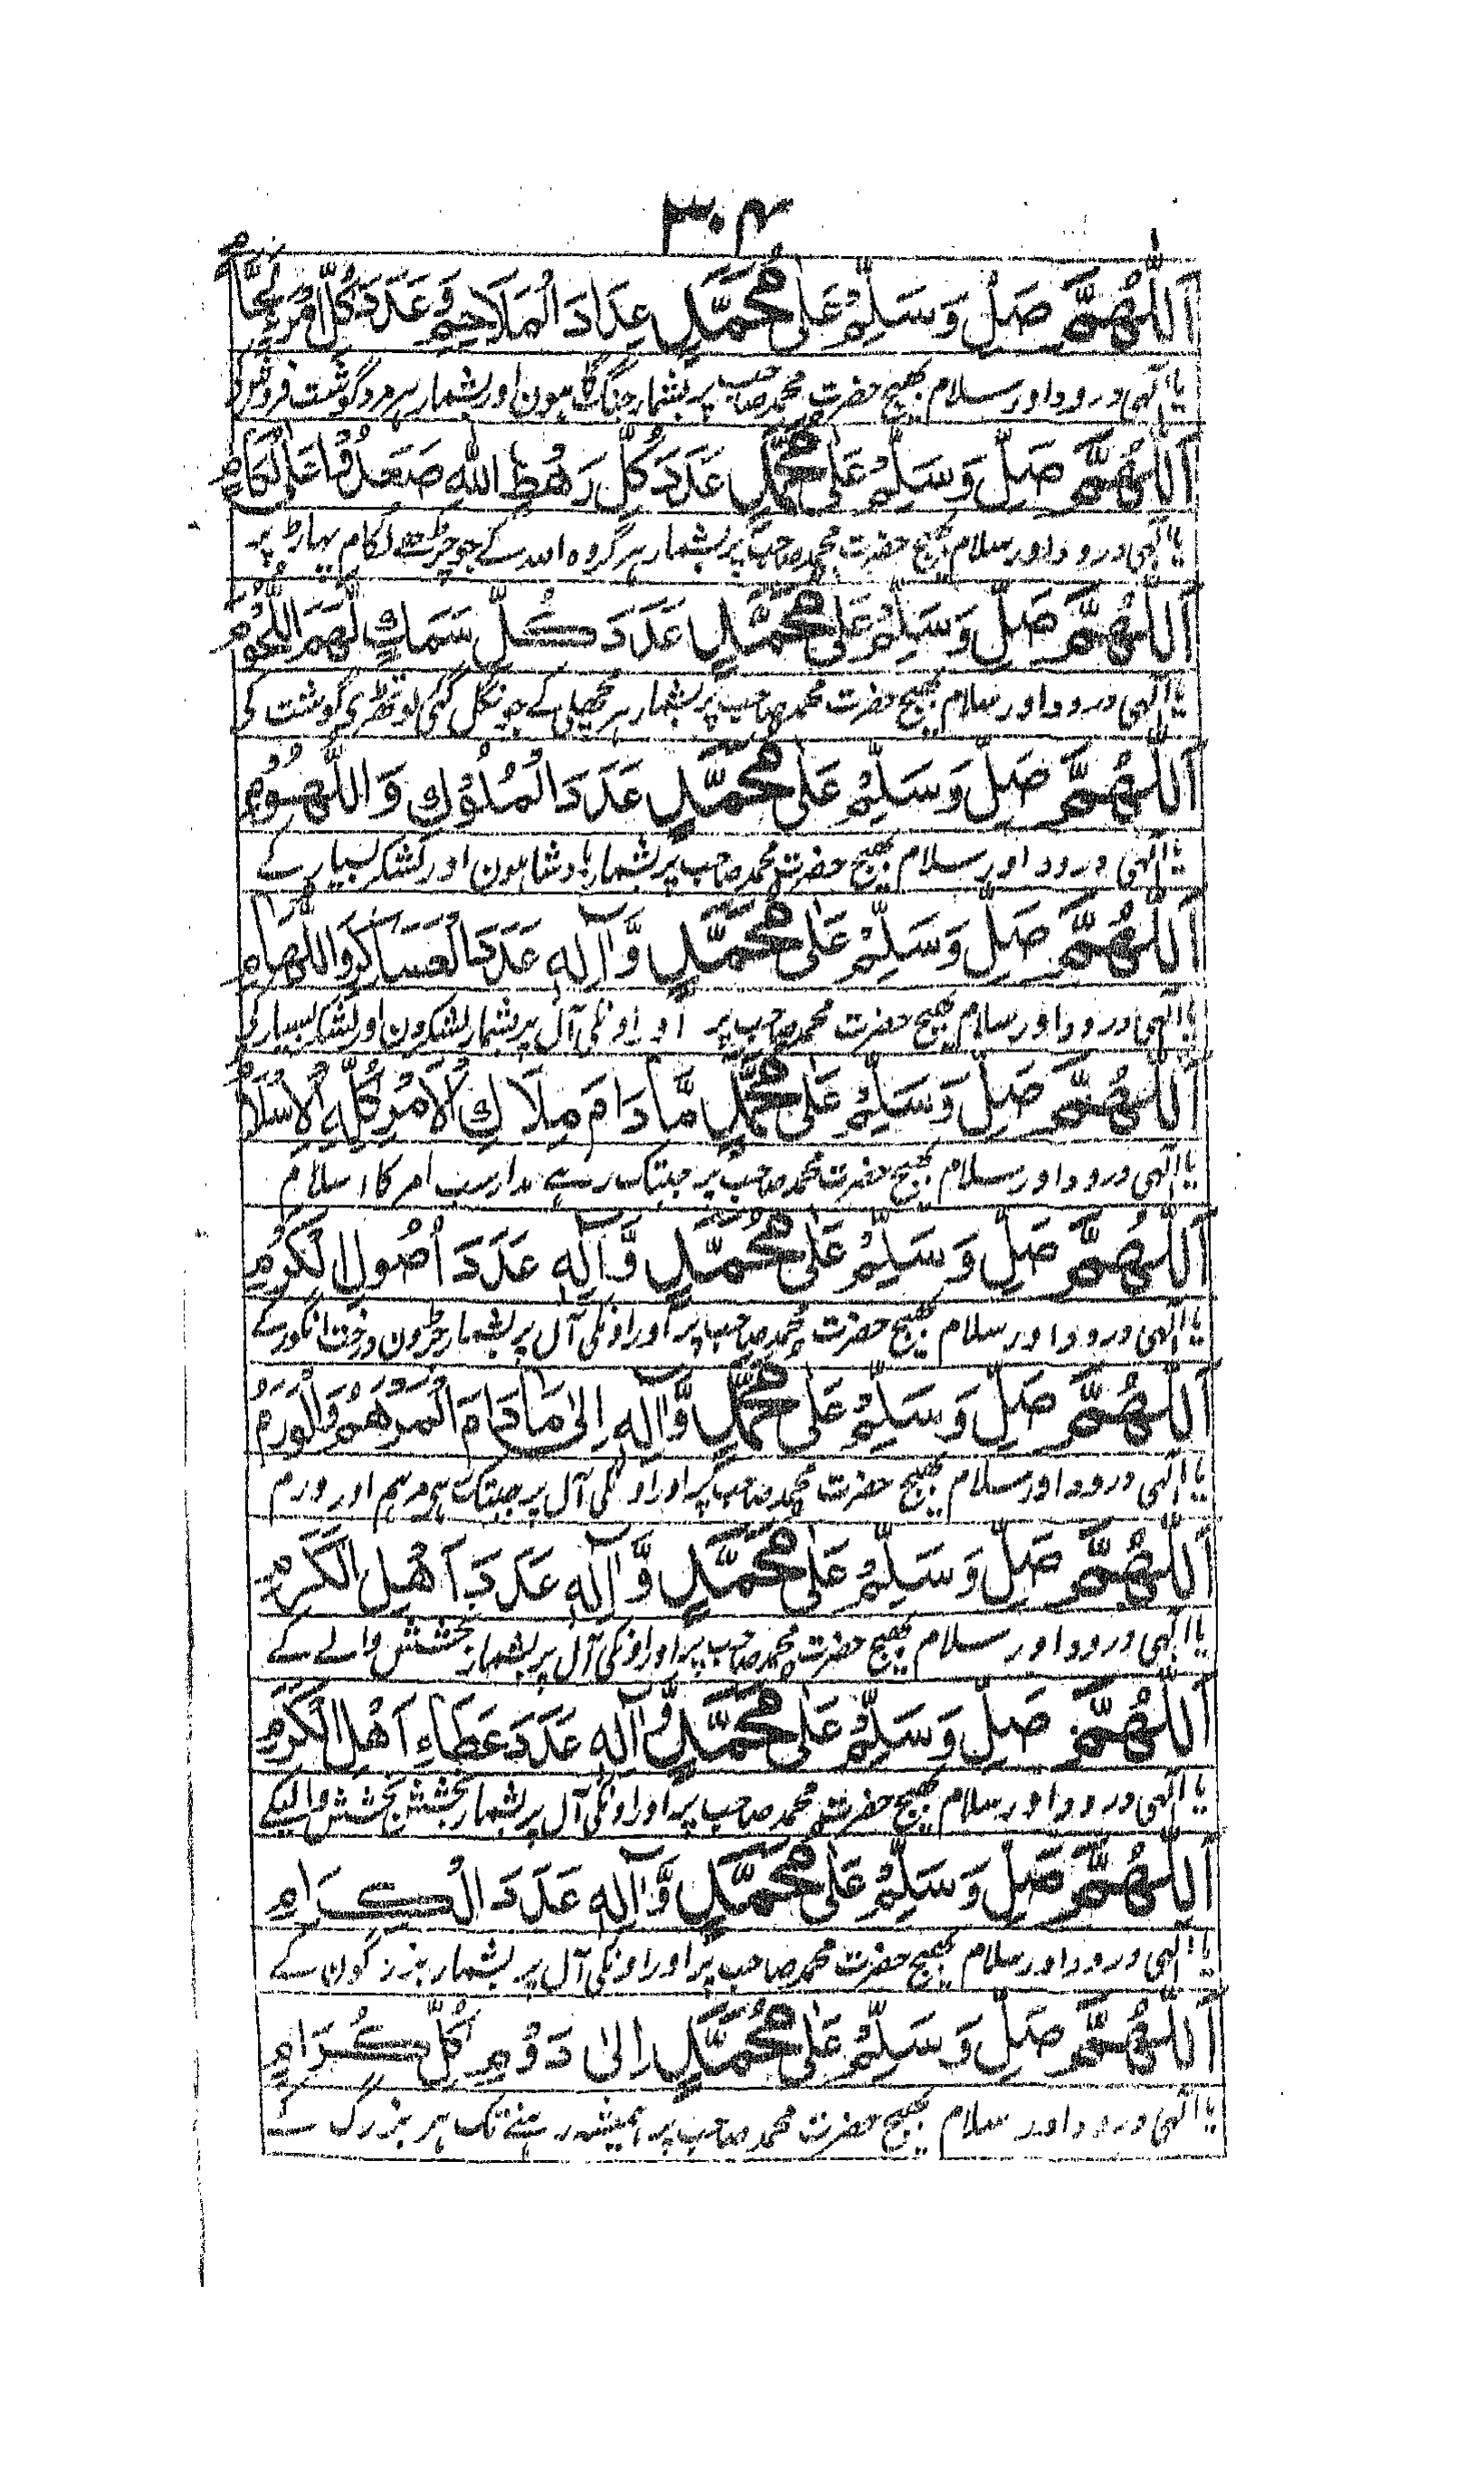 ۳۰۴
اَللّٰهُمَّ صَلِّ وَسَلِّمْ عَلٰى مُحَمَّدٍ عِدَادَ الْمَلَاحِمِ وَعَدَدَ كُلِّ امْرِءٍ لَحَّامٍ
یا الٰہی درود اور سلام بھیج حضرت محمد صاحب پر بشمار جنگ گاہون اور بشمار ہر مرد گوشت فروش کے
اَللّٰهُمَّ صَلِّ وَسَلِّمْ عَلٰى مُحَمَّدٍ عَدَدَ كُلِّ رَهْطِ اللّٰهِ صَعَدُوْا عَلَى لُكَامٍ
یا الٰہی درود اور سلام بھیج حضرت محمد صاحب پر بشمار ہر گروہ اللہ کے جو چڑھے لکام پہاڑ پر
اَللّٰهُمَّ صَلِّ وَسَلِّمْ عَلٰى مُحَمَّدٍ عَدَدَ كُلِّ سَمَكٍ لَهَمَ اللُّحُوْمَ
یا الٰہی درود اور سلام بھیج حضرت محمد صاحب پر بشمار ہر مچھلی کے جو نگل گئی لوتھڑی گوشت کی
اَللّٰهُمَّ صَلِّ وَسَلِّمْ عَلٰى مُحَمَّدٍ عَدَدَ الْمُلُوْكِ وَ اللُّهُوْمِ
یا الٰہی درود اور سلام بھیج حضرت محمد صاحب پر بشمار بادشاہون اور لشکر بسیار کے
اَللّٰهُمَّ صَلِّ وَسَلِّمْ عَلٰى مُحَمَّدٍ وَّاٰلِهٖ عَدَدَ الْعَسَاكِرِ وَاللُّهَامِ
یا الٰہی درود اور سلام بھیج حضرت محمد صاحب پر اور اونکی آل پر بشمار لشکرون اور لشکر بسیار کے
اَللّٰهُمَّ صَلِّ وَسَلِّمْ عَلٰى مُحَمَّدٍ مَّا دَامَ مِلَاكِ الْاَمْرِ كُلِّهِ الْاِسْلَامُ
یا الٰہی درود اور سلام بھیج حضرت محمد صاحب پر جبتک رہے مدار سب امر کا اسلام
اَللّٰهُمَّ صَلِّ وَسَلِّمْ عَلٰى مُحَمَّدٍ وَّاٰلِهٖ عَدَدَ اُصُوْلِ الْكَرْمِ
یا الٰہی درود اور سلام بھیج حضرت محمد صاحب پر اور اونکی آل پر بشمار جڑون درخت انگور کے
اَللّٰهُمَّ صَلِّ وَسَلِّمْ عَلٰى مُحَمَّدٍ وَّاٰلِهٖ اِلٰى مَا دَامَ الْمَرْهَمُ وَالْوَرَمُ
یا الٰہی درود اور سلام بھیج حضرت محمد صاحب پر اور اونکی آل پر جبتک ہی مرہم اور ورم
اَللّٰهُمَّ صَلِّ وَسَلِّمْ عَلٰى مُحَمَّدٍ وَّاٰلِهٖ عَدَدَ اَهْلِ الْكَرَمِ
یا الٰہی درود اور سلام بھیج حضرت محمد صاحب پر اور اونکی آل پر بشمار بخشش والے کے
اَللّٰهُمَّ صَلِّ وَسَلِّمْ عَلٰى مُحَمَّدٍ وَّاٰلِهٖ عَدَدَ عَطَاءِ اَهْلِ الْكَرَمِ
یا الٰہی درود اور سلام بھیج حضرت محمد صاحب پر اور اونکی آل پر بشمار بخشش بخشش والیکے
اَللّٰهُمَّ صَلِّ وَسَلِّمْ عَلٰى مُحَمَّدٍ وَّاٰلِهٖ عَدَدَ الْكِرَامِ
یا الٰہی درود اور سلام بھیج حضرت محمد صاحب پر اور اونکی آل پر بشمار بزرگون کے
اَللّٰهُمَّ صَلِّ وَسَلِّمْ عَلٰى مُحَمَّدٍ اِلٰى دَوْمِ كُلِّ كُرَامٍ
یا الٰہی درود اور سلام بھیج حضرت محمد صاحب پر ہمیشہ رہنے تک ہر بزرگ کے